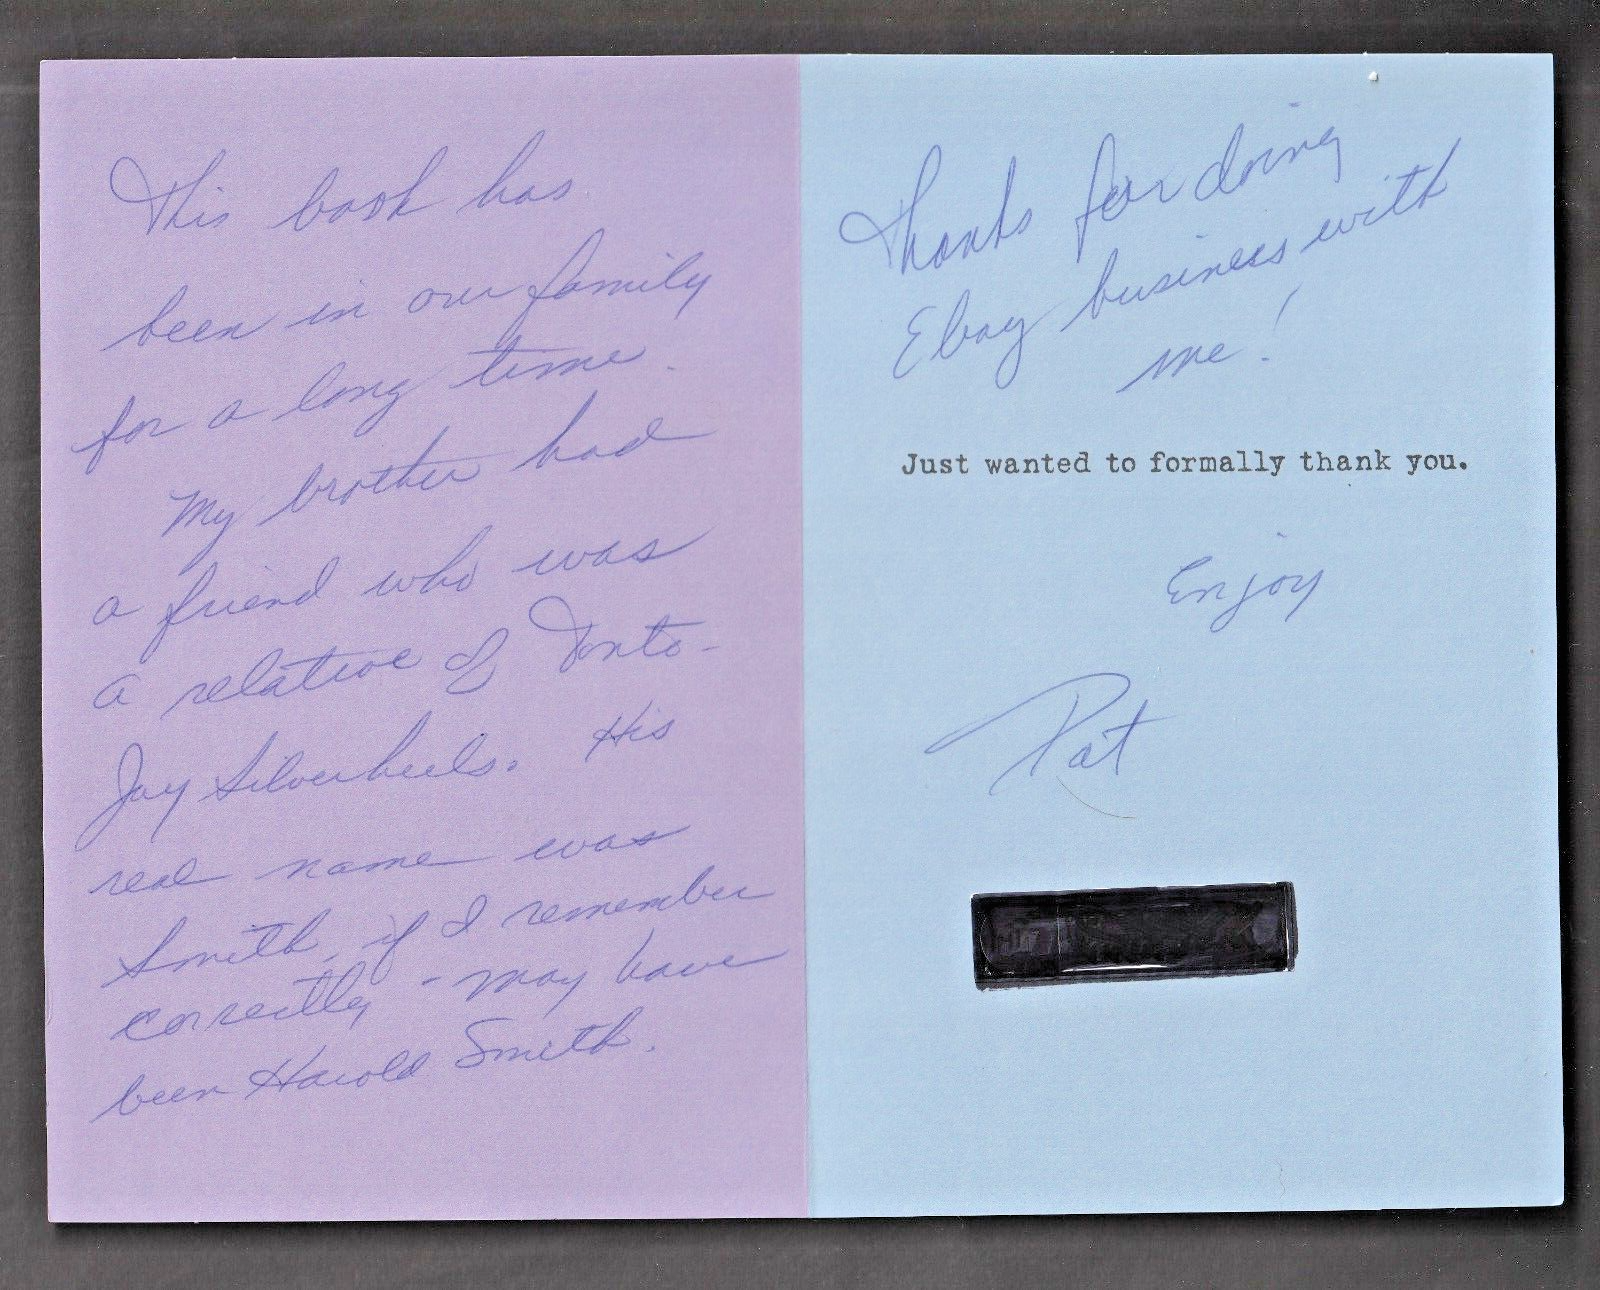 This book has
been in our family
for a long time.
My brother had
a friend who was
a relative of Tonto -
Jay Silverheels. His
real name was
Smith, if I remember
correctly - may have
been Harold Smith.
Thanks for doing
Ebay business with
me!
Just wanted to formally thank you.
Enjoy
Pat